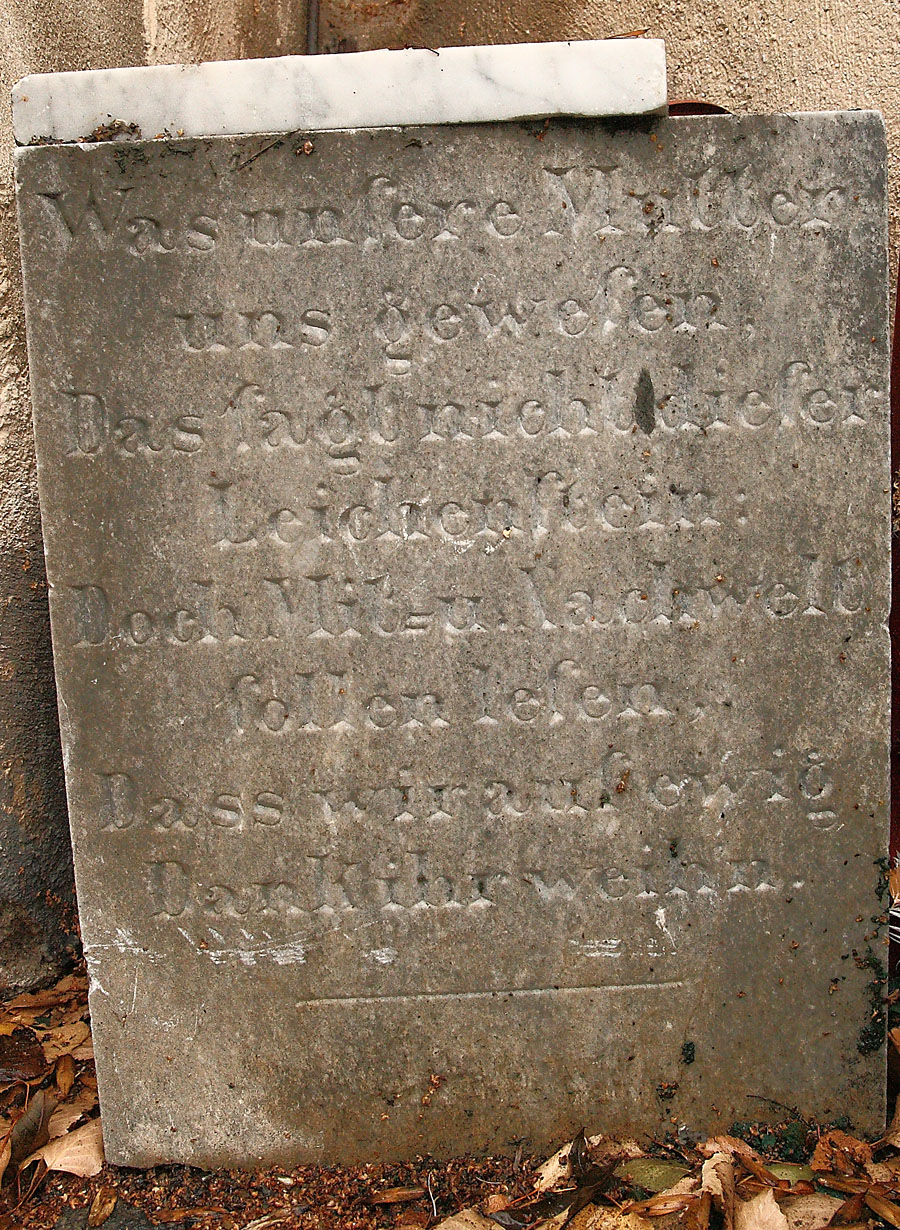 Was unſere Mutter
uns geweſen,
Das ſagt nicht dieſer
Leichenſtein:
Doch Mit=u. Nachwelt
ſollen leſen,
Dass wir auf ewig
Dank ihr weihn.